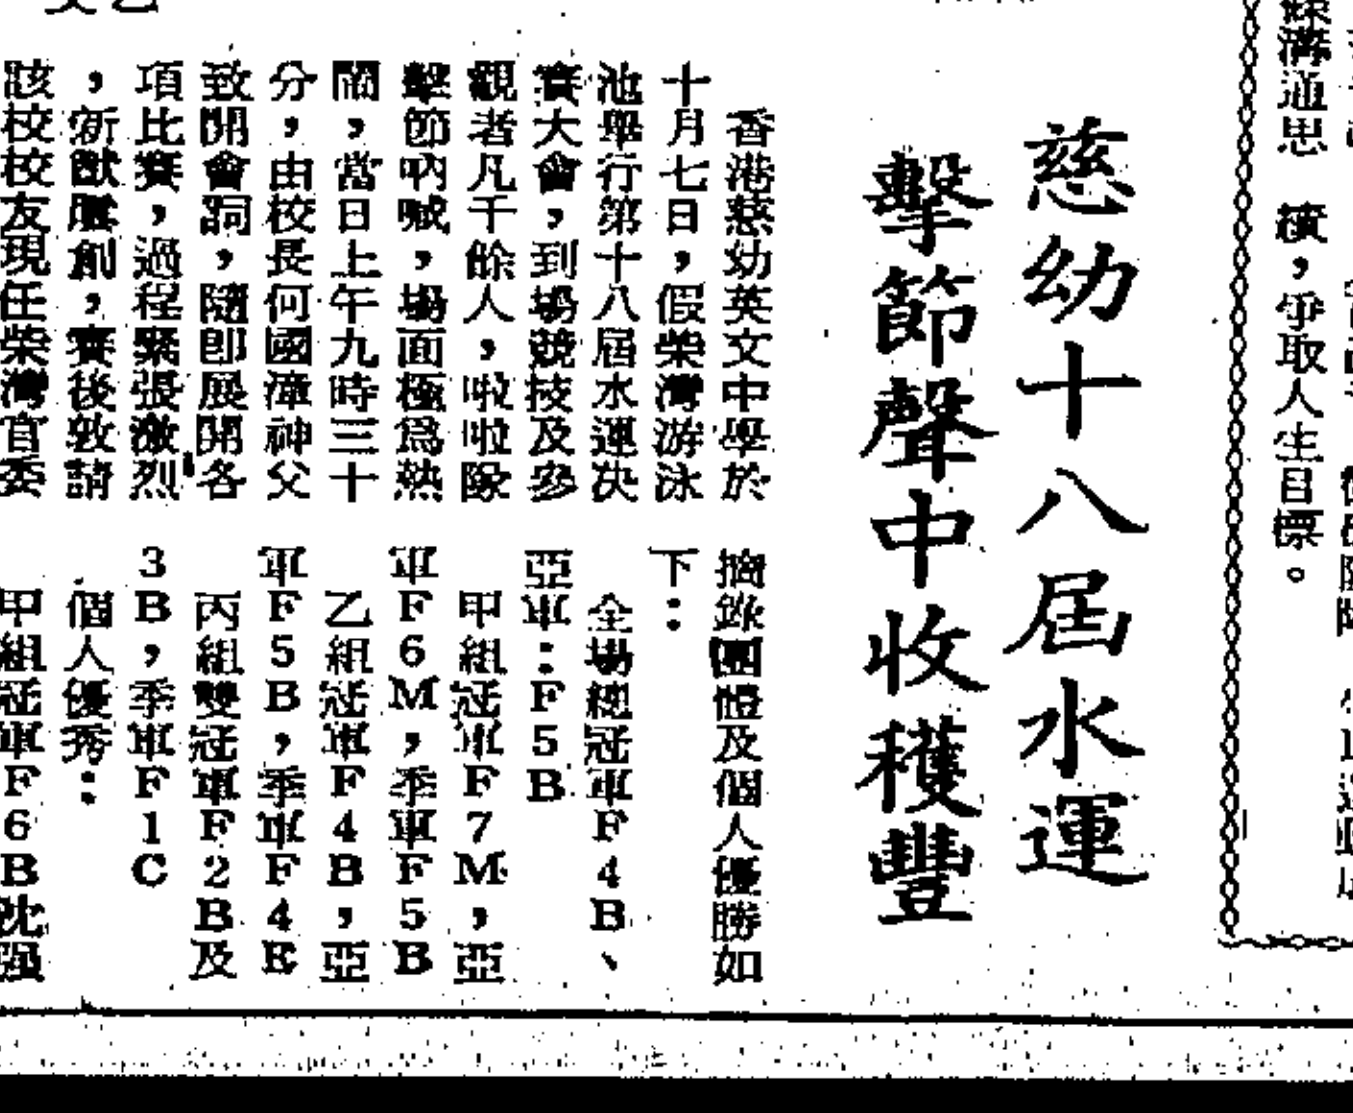 慈幼十八屆水運
擊節聲中收穫豐
香港慈幼英文中學於
十月七日，假柴灣游泳
池舉行第十八屆水運決
賽大會，到場競技及參
觀者凡千餘人，啦啦隊
擊節吶喊，場面極為熱
鬧，當日上午九時三十
分，由校長何國漳神父
致開會詞，隨即展開各
項比賽，過程緊張激烈
，新猷屢創，賽後敦請
該校校友現任柴灣官委
摘錄團體及個人優勝如
下：
全場總冠軍F4B、
亞軍：F5B
甲組冠軍F7M，亞
軍F6M，季軍F5B
乙組冠軍F4B，亞
軍F5B，季軍F4E
丙組雙冠軍F2B及
3B，季軍F1C
個人優秀：
甲組冠軍F6B沈强
溝通思
績，爭取人生目標。